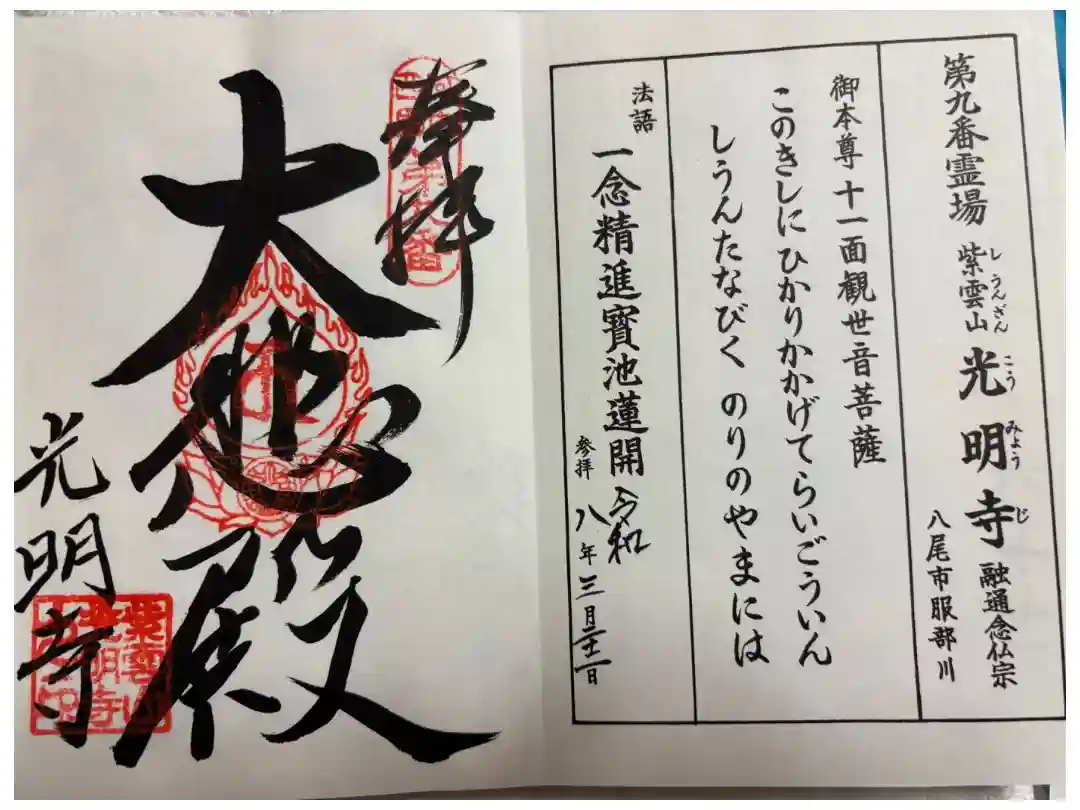 第九番霊場 紫雲山 光明寺 融通念仏宗
しうんざん こうみょうじ
八尾市服部川
御本尊 十一面観世音菩薩
このきしにひかりかかげてらいごういん
しうんたなびく のりのやまには
法語 一念精進寶池蓮開
参拝 令和八年三月二十一日
奉拝
第九番
大悲殿
光明寺
紫雲山
光明寺